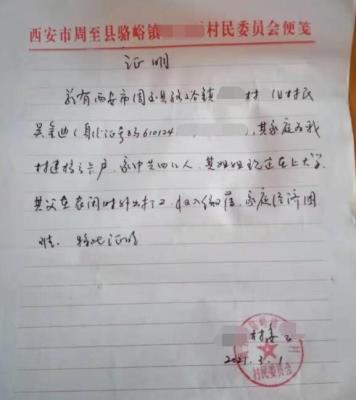 西安市周至县骆峪镇 村民委员会便笺
证明
兹有西安市周至县骆峪镇 村 组村民
吴 迪(身份证号码610124 ),其家庭为我
村建档立卡户,家中共四口人,其姐姐现还在上大学,
其父在农闲时外出打工,收入微薄,家庭经济困
难。特此证明
村委会
2021.3.1
村民委员会